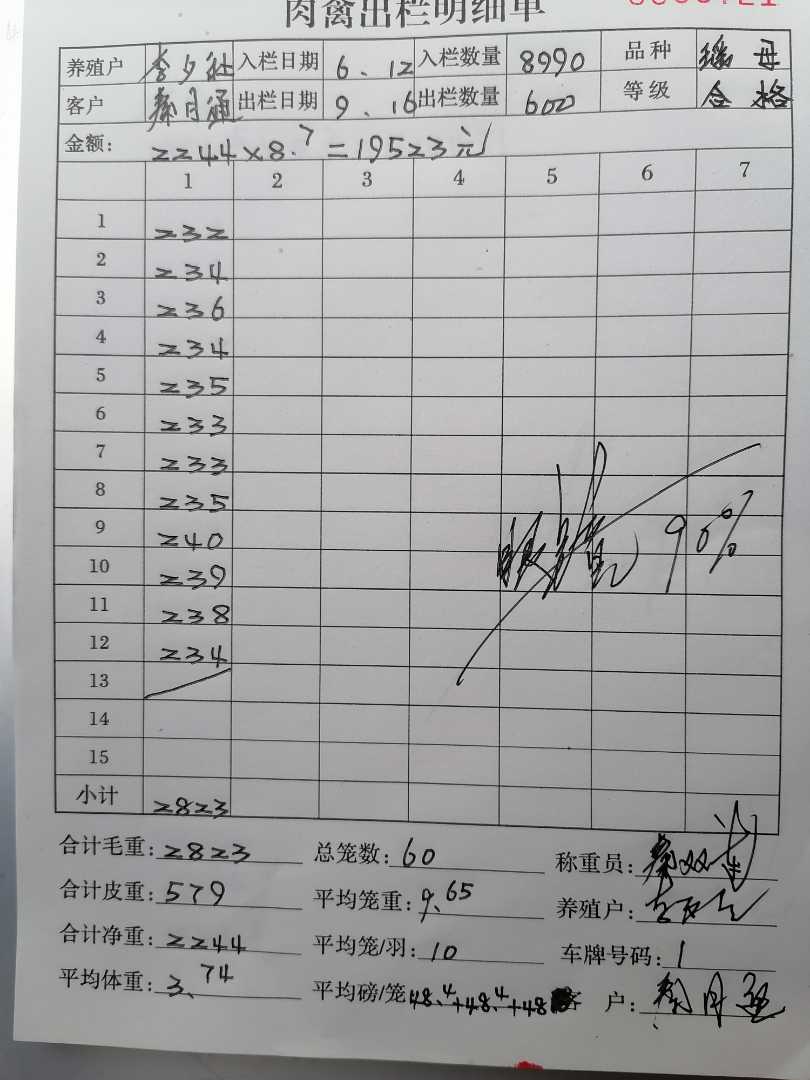 肉禽出栏明细单
养殖户 李夕 入栏日期 6.12 入栏数量 8990 品种 瑶母
客户 秦月通 出栏日期 9.16 出栏数量 600 等级 合格
金额: 2244×8.7=19523元
1 2 3 4 5 6 7
1 232
2 234
3 236
4 234
5 235
6 233
7 233
8 235
9 240
10 239
11 238
12 234
13
14
15
90%
小计 2823
合计毛重: 2823 总笼数: 60 称重员: 秦双
合计皮重: 579 平均笼重: 9.65 养殖户:
合计净重: 2244 平均笼/羽: 10 车牌号码: 1
平均体重: 3.74 平均磅/笼 48.4+48.4+48 客户: 秦月通